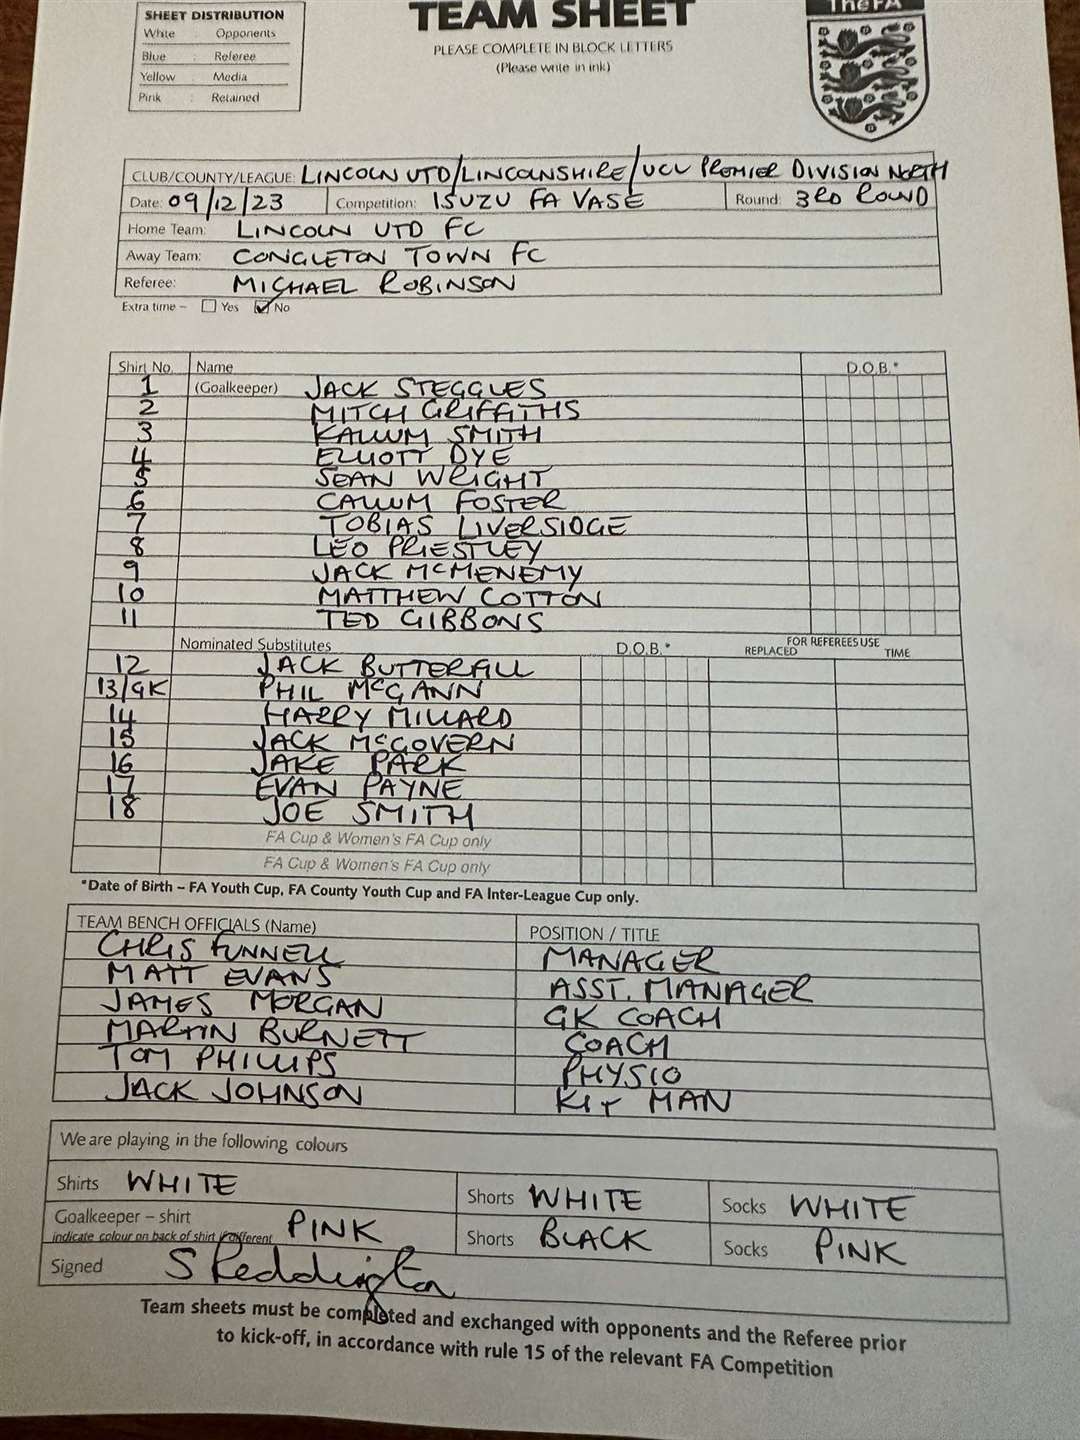 SHEET DISTRIBUTION
White : Opponents
Blue : Referee
Yellow : Media
Pink : Retained
TEAM SHEET
PLEASE COMPLETE IN BLOCK LETTERS
(Please write in ink)
The FA
CLUB/COUNTY/LEAGUE: LINCOLN UTD/LINCOLNSHIRE/UCL PREMIER DIVISION NORTH
Date: 09/12/23 Competition: ISUZU FA VASE Round: 3RD ROUND
Home Team: LINCOLN UTD FC
Away Team: CONGLETON TOWN FC
Referee: MICHAEL ROBINSON
Extra time – Yes No
Shirt No. Name D.O.B.*
1 (Goalkeeper) JACK STEGGLES
2 MITCH GRIFFITHS
3 KALLUM SMITH
4 ELLIOTT DYE
5 SEAN WRIGHT
6 CALLUM FOSTER
7 TOBIAS LIVERSIDGE
8 LEO PRIESTLEY
9 JACK MCMENEMY
10 MATTHEW COTTON
11 TED GIBBONS
Nominated Substitutes D.O.B.* FOR REFEREES USE
REPLACED TIME
12 JACK BUTTERFILL
13/GK PHIL McGANN
14 HARRY MILLARD
15 JACK McGOVERN
16 JAKE PARK
17 EVAN PAYNE
18 JOE SMITH
FA Cup & Women's FA Cup only
FA Cup & Women's FA Cup only
*Date of Birth – FA Youth Cup, FA County Youth Cup and FA Inter-League Cup only.
TEAM BENCH OFFICIALS (Name) POSITION / TITLE
CHRIS FUNNELL MANAGER
MATT EVANS ASST. MANAGER
JAMES MORGAN GK COACH
MARTIN BURNETT COACH
TOM PHILLIPS PHYSIO
JACK JOHNSON KIT MAN
We are playing in the following colours
Shirts WHITE Shorts WHITE Socks WHITE
Goalkeeper – shirt PINK Shorts BLACK Socks PINK
indicate colour on back of shirt if different
Signed S Reddington
Team sheets must be completed and exchanged with opponents and the Referee prior
to kick-off, in accordance with rule 15 of the relevant FA Competition